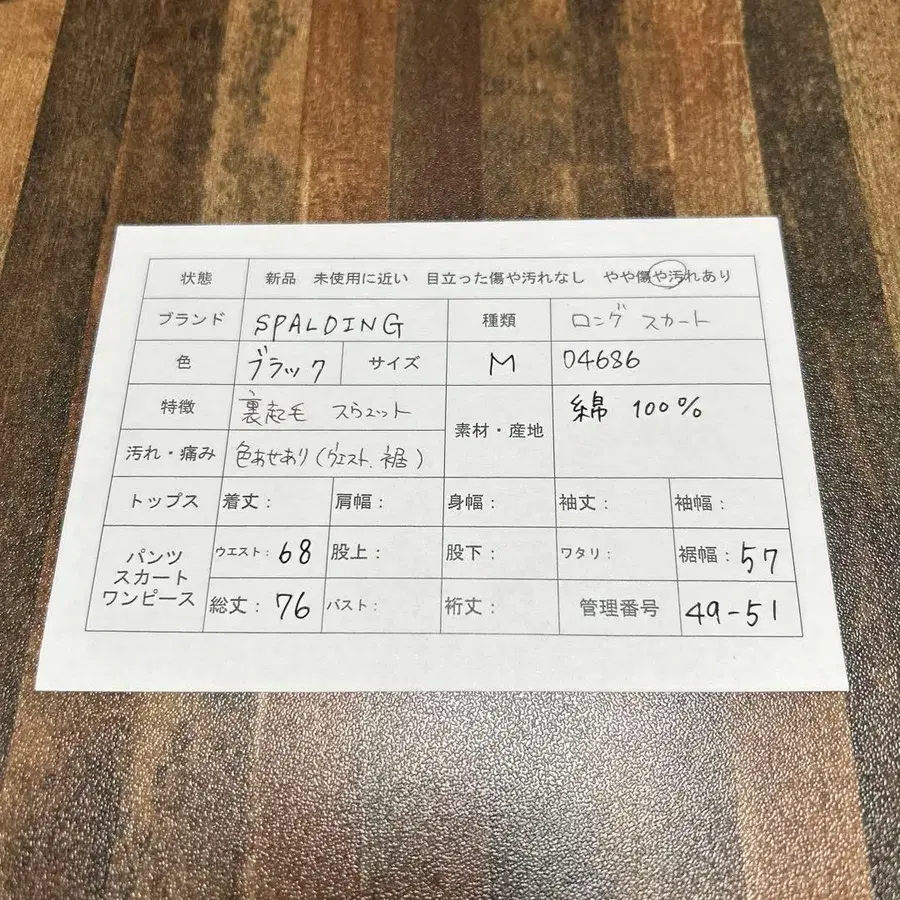 状態 新品 未使用に近い 目立った傷や汚れなし やや傷や汚れあり
ブランド SPALDING 種類 ロング スカート
色 ブラック サイズ M 04686
特徴 裏起毛 スウェット 素材・産地 綿 100%
汚れ・痛み 色あせあり(ウエスト、裾)
トップス 着丈: 肩幅: 身幅: 袖丈: 袖幅:
パンツ スカート ワンピース ウエスト: 68 股上: 股下: ワタリ: 裾幅: 57
総丈: 76 バスト: 裄丈: 管理番号 49-51